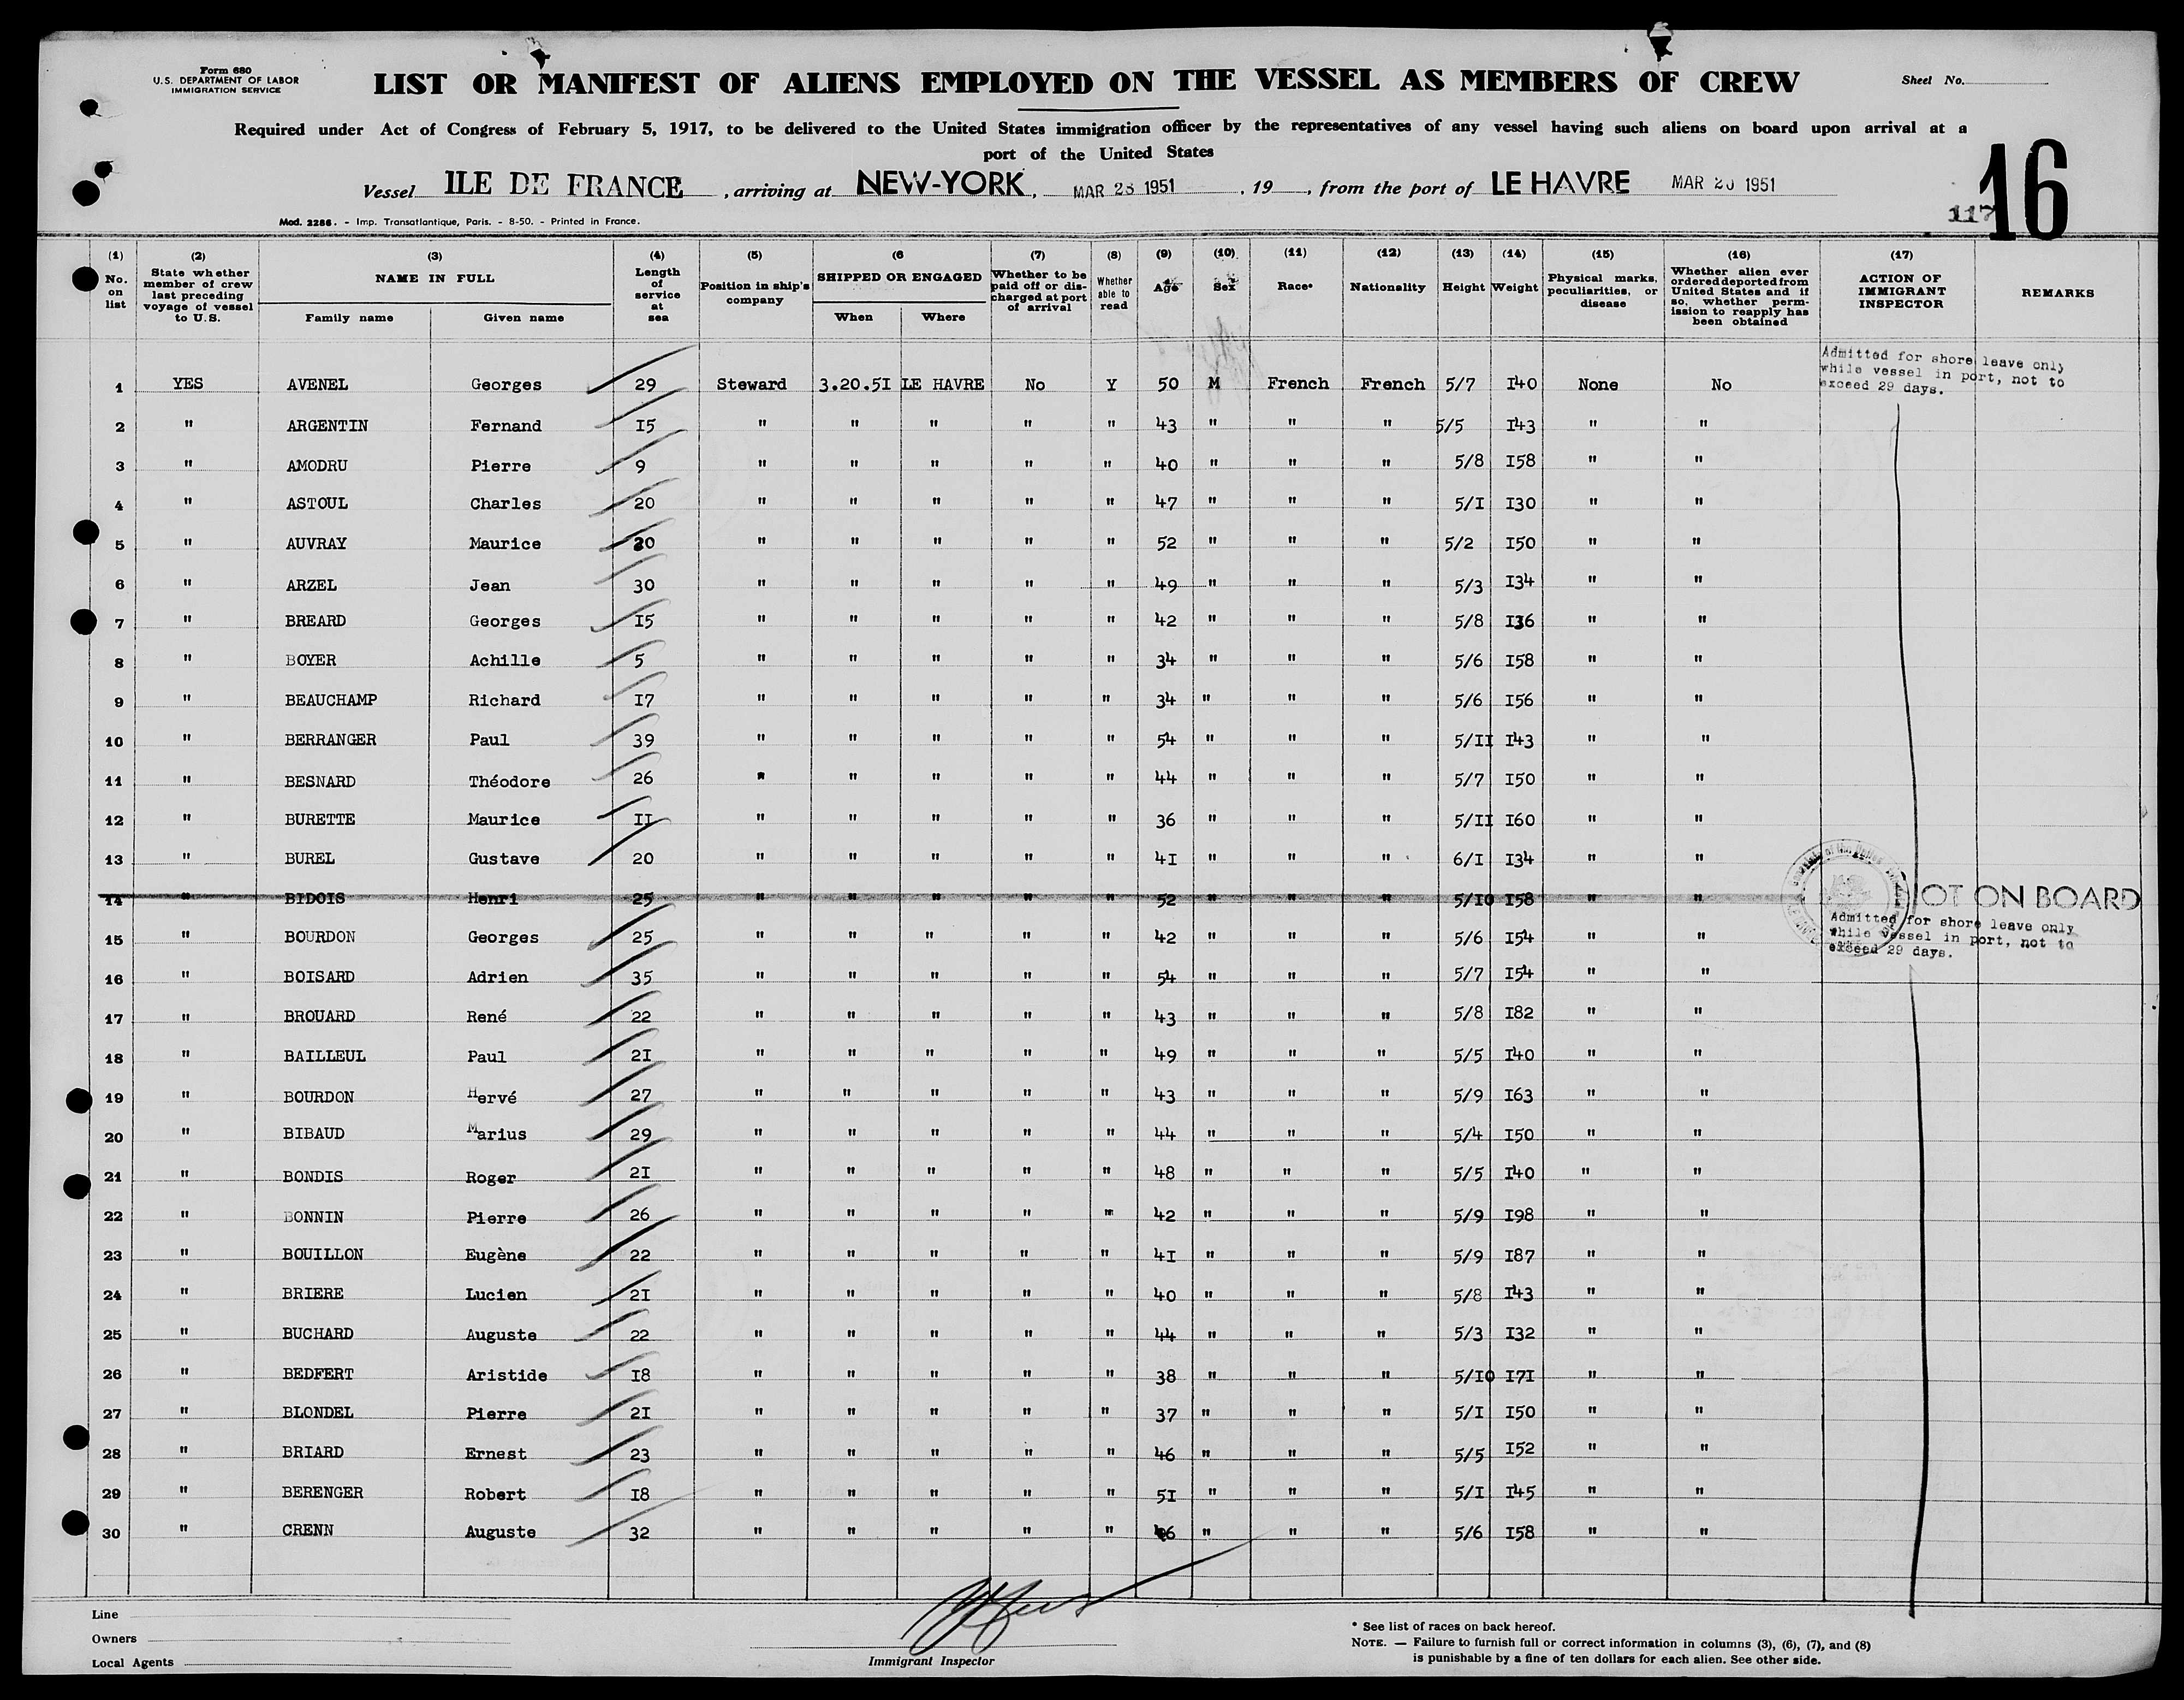 Form 680
U.S. DEPARTMENT OF LABOR
IMMIGRATION SERVICE
LIST OR MANIFEST OF ALIENS EMPLOYED ON THE VESSEL AS MEMBERS OF CREW
Sheet No.
Required under Act of Congress of February 5, 1917, to be delivered to the United States immigration officer by the representatives of any vessel having such aliens on board upon arrival at a
port of the United States
16
Vessel ILE DE FRANCE, arriving at NEW-YORK, MAR 23 1951, 19, from the port of LE HAVRE MAR 20 1951
117
Mod. 2286. - Imp. Transatlantique, Paris. - 8-50. - Printed in France.
(1) No. on list (2) State whether member of crew last preceding voyage of vessel to U.S. (3) NAME IN FULL Family name Given name (4) Length of service at sea (5) Position in ship's company (6 SHIPPED OR ENGAGED When Where (7) Whether to be paid off or discharged at port of arrival (8) Whether able to read (9) Age (10) Sex (11) Race* (12) Nationality (13) Height (14) Weight (15) Physical marks, peculiarities, or disease (16) Whether alien ever ordered deported from United States and if so, whether permission to reapply has been obtained (17) ACTION OF IMMIGRANT INSPECTOR REMARKS
Admitted for shore leave only
while vessel in port, not to
exceed 29 days.
1 YES AVENEL Georges 29 Steward 3.20.5I LE HAVRE No Y 50 M French French 5/7 I40 None No
2 " ARGENTIN Fernand I5 " " " " " 43 " " " 5/5 I43 " "
3 " AMODRU Pierre 9 " " " " " 40 " " " 5/8 I58 " "
4 " ASTOUL Charles 20 " " " " " 47 " " " 5/I I30 " "
5 " AUVRAY Maurice 20 " " " " " 52 " " " 5/2 I50 " "
6 " ARZEL Jean 30 " " " " " 49 " " " 5/3 I34 " "
7 " BREARD Georges I5 " " " " " 42 " " " 5/8 I36 " "
8 " BOYER Achille 5 " " " " " 34 " " " 5/6 I58 " "
9 " BEAUCHAMP Richard I7 " " " " " 34 " " " 5/6 I56 " "
10 " BERRANGER Paul 39 " " " " " 54 " " " 5/II I43 " "
11 " BESNARD Théodore 26 " " " " " 44 " " " 5/7 I50 " "
12 " BURETTE Maurice II " " " " " 36 " " " 5/II I60 " "
13 " BUREL Gustave 20 " " " " " 4I " " " 6/I I34 " "
14 " BIDOIS Henri 25 " " " " " 52 " " " 5/I0 I58 " " OT ON BOARD
Admitted for shore leave only
while vessel in port, not to
exceed 29 days.
15 " BOURDON Georges 25 " " " " " 42 " " " 5/6 I54 " "
16 " BOISARD Adrien 35 " " " " " 54 " " " 5/7 I54 " "
17 " BROUARD René 22 " " " " " 43 " " " 5/8 I82 " "
18 " BAILLEUL Paul 2I " " " " " 49 " " " 5/5 I40 " "
19 " BOURDON Hervé 27 " " " " " 43 " " " 5/9 I63 " "
20 " BIBAUD Marius 29 " " " " " 44 " " " 5/4 I50 " "
21 " BONDIS Roger 2I " " " " " 48 " " " 5/5 I40 " "
22 " BONNIN Pierre 26 " " " " " 42 " " " 5/9 I98 " "
23 " BOUILLON Eugène 22 " " " " " 4I " " " 5/9 I87 " "
24 " BRIERE Lucien 2I " " " " " 40 " " " 5/8 I43 " "
25 " BUCHARD Auguste 22 " " " " " 44 " " " 5/3 I32 " "
26 " BEDFERT Aristide I8 " " " " " 38 " " " 5/I0 I7I " "
27 " BLONDEL Pierre 2I " " " " " 37 " " " 5/I I50 " "
28 " BRIARD Ernest 23 " " " " " 46 " " " 5/5 I52 " "
29 " BERENGER Robert I8 " " " " " 5I " " " 5/I I45 " "
30 " CRENN Auguste 32 " " " " " 46 " " " 5/6 I58 " "
Line
Owners
Local Agents
Immigrant Inspector
* See list of races on back hereof.
NOTE. — Failure to furnish full or correct information in columns (3), (6), (7), and (8)
is punishable by a fine of ten dollars for each alien. See other side.